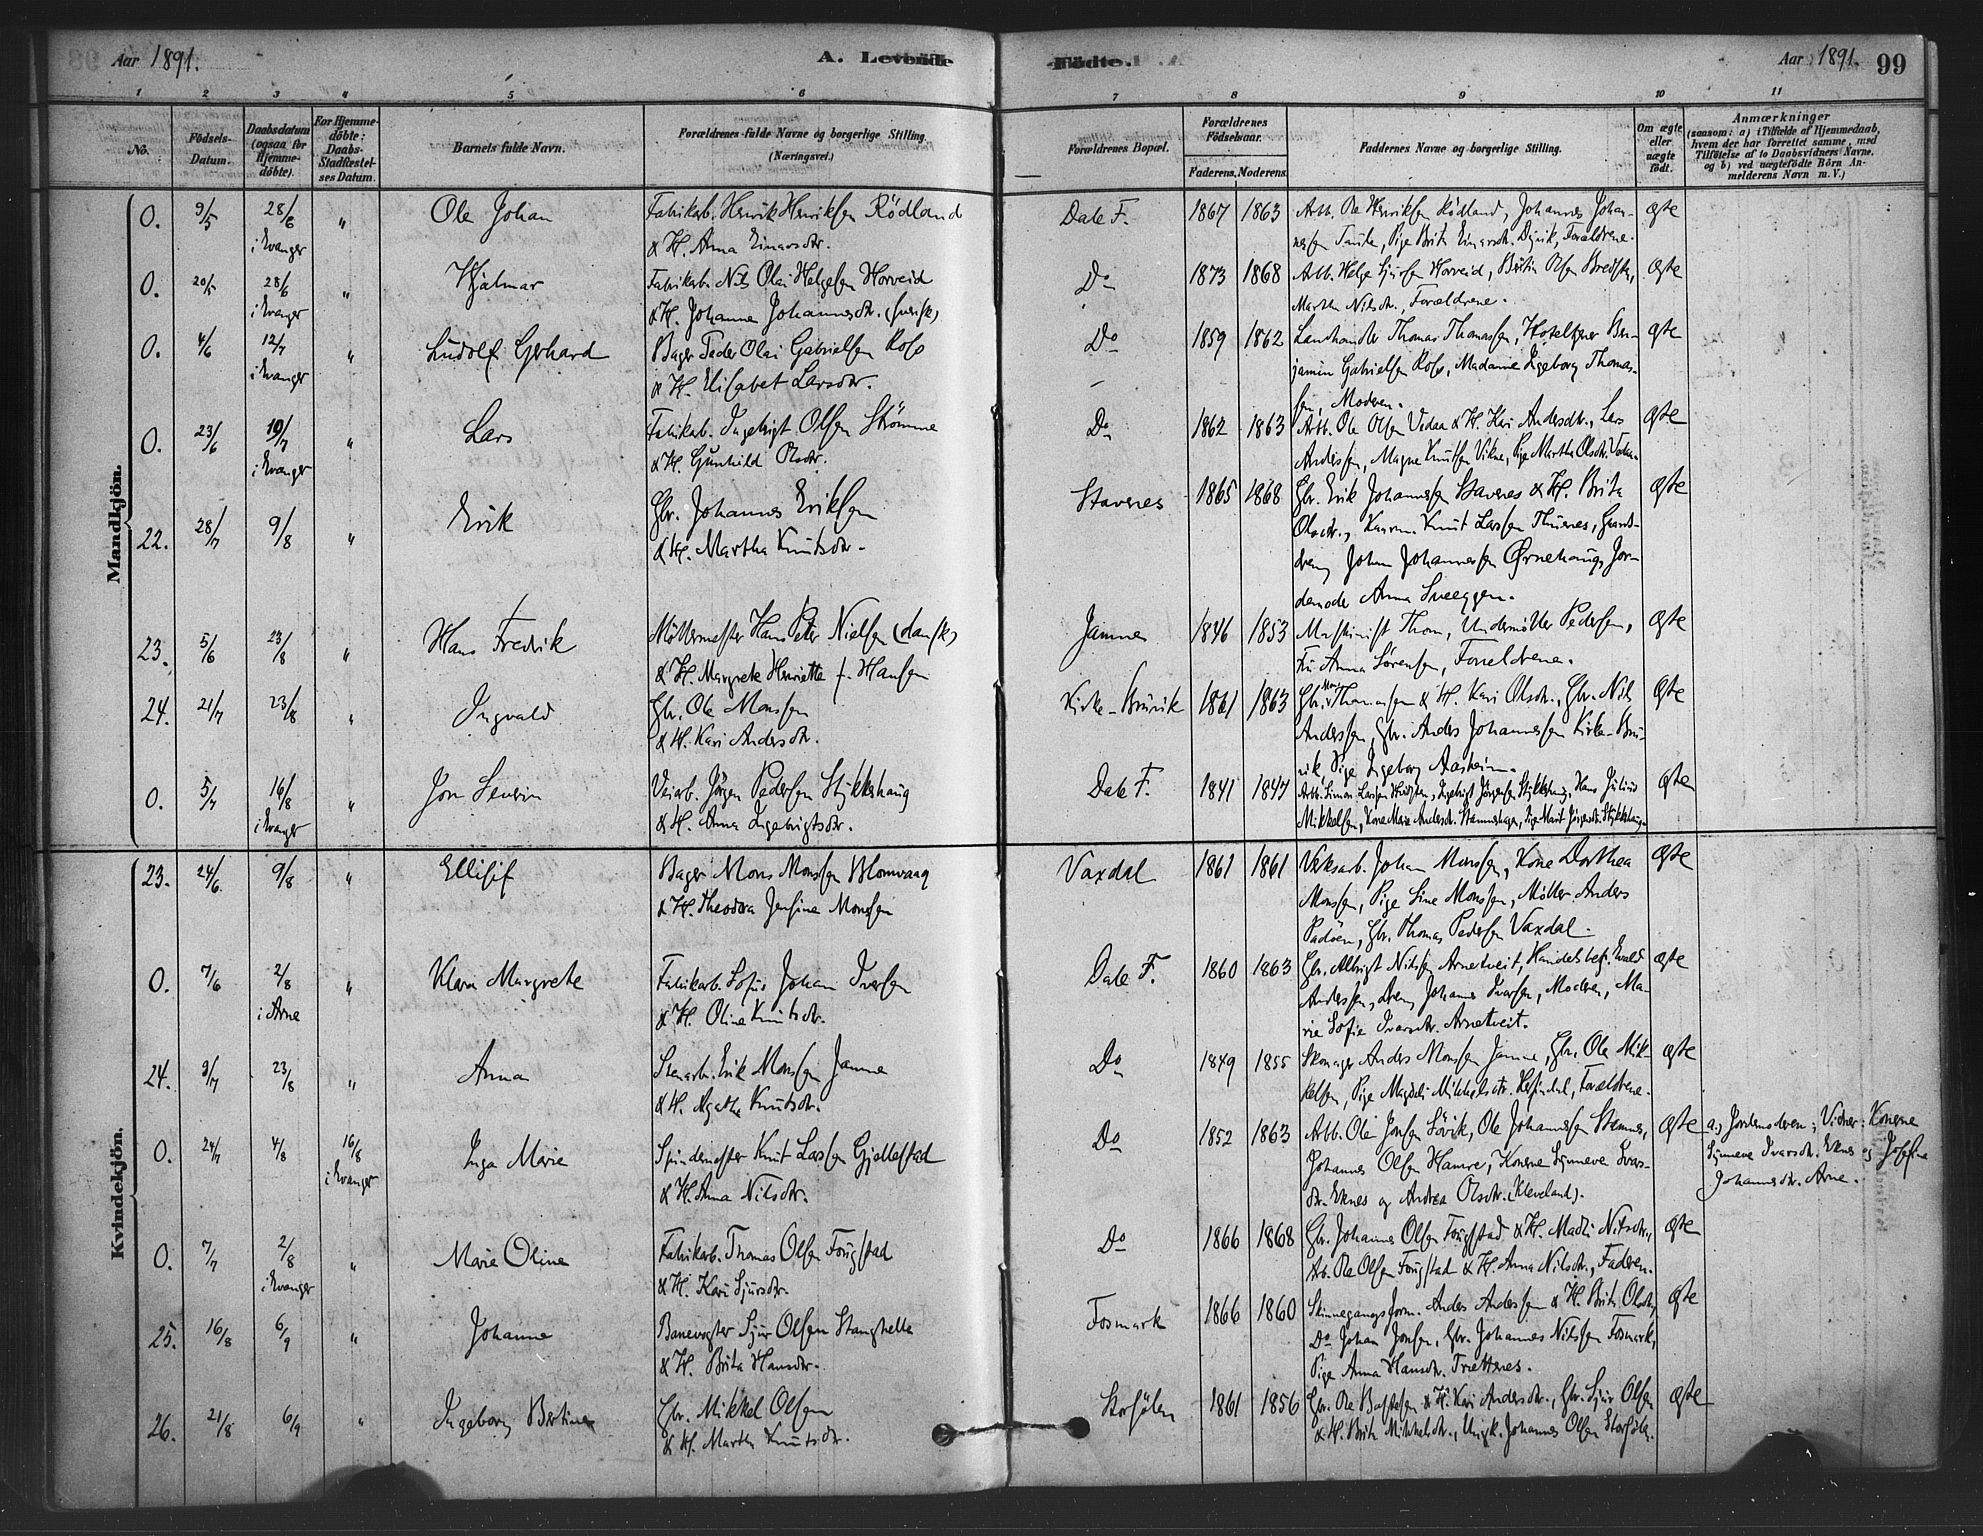 Aar 1891. A. Levende
Födte. Aar 1891. 99
1 2 3 4 5 6 7 8 9 10 11
No.
Födsels-
Datum.
Daabsdatum
(ogsaa for
Hjemme-
döbte).
For Hjemme-
döbte:
Daabs-
Stadfæstel-
ses Datum.
Barnets fulde Navn.
Forældrenes fulde Navne og borgerlige Stilling.
(Næringsvei.)
Forældrenes Bopæl.
Forældrenes
Födselsaar.
Faderens. Moderens.
Faddernes Navne og borgerlige Stilling.
Om ægte
eller
uægte
födt.
Anmærkninger
(saasom: a) i Tilfælde af Hjemmedaab,
hvem der har forrettet samme, med
Tilföielse af to Daabsvidners Navne,
og b) ved uægtefödte Börn An-
melderens Navn m. V.)
Mandkjön.
0. 9/5 28/6 i Evanger " Ole Johan
Fabrikarb. Henrik Henriksen Rödland
& H. Anna Einarsdtr.
Dale F. 1867 1863
Arb. Ole Henriksen Rödland, Johannes Johan-
nesen Taule, Pige Brita Einarsdtr. Forældrene.
Ægte
0. 20/5 28/6 i Evanger " Hjalmar
Fabrikarb. Nils Olai Helgesen Horveid
& H. Johanne Johannesdtr. (svensk)
Do 1873 1868
Arb. Helge Sjursen Horveid, Olsen
Martha Nilsdtr., Forældrene.
Ægte
0. 4/6 12/7 i Evanger " Ludolf Gerhard
Bager Peder Olai Gabrielsen Ross
& H. Elisabet Larsdtr.
Do 1859 1862
Landhandler Thomas Thomassen, Ben-
jamin Gabrielsen Ross, Madame Ingeborg Thomas-
sen, Moderen.
Ægte
0. 23/6 19/7 i Evanger " Lars
Fabrikarb. Ingebrigt Olsen Strömme
& H. Gunhild Olsdtr.
Do 1862 1863
Arb. Ole Olsen Vidaa & H. Kari Andersdtr., Lars
Andersen, Magne Knutsen Vikne, Pige Martha Olsdtr.
Ægte
22. 28/7 9/8 " Erik
Gbr. Johannes Eriksen
& H. Martha Knutsdtr.
Stavenes 1865 1868
Gbr. Erik Johannesen Stavenes & H. Brita
Olsdtr., Knut Larssen Gaards-
dreng Johan Johannessen Ørnehaug, Jor-
demoder Anna
Ægte
23. 5/6 23/8 " Hans Fredrik
Möllermester Hans Peter Nielsen (dansk)
& H. Margrete Henriette f. Hansen
Jamne 1846 1853
Maskinist Thom, Undermöller Pedersen,
Fru Anna Sörensen, Forældrene.
Ægte
24. 21/7 23/8 " Ingvald
Gbr. Ole Monssen
& H. Kari Andersdtr.
Kirke-Bruvik 1861 1863
Gbr. Mons Thomassen & H. Kari Olsdtr., Gbr. Nils
Anderssen, Gbr. Anders Johannessen Kirke-Bru-
vik, Pige Ingeborg Aasheim.
Ægte
0. 5/7 16/8 i Evanger " Jon Severin
Veiarb. Jörgen Pedersen Stykkshaug
& H. Anna Ingebrigtsdtr.
Dale F. 1841 1847
Arb. Simon Larsen Ingebrigt Jörgensen Stykkshaug, Hans Julius
Mikkelsen, Kone Marie Andersdtr. Pige Marit Jörgensdtr. Stykkshaug
Ægte
Kvindekjön.
23. 24/6 9/8 " Ellisif
Bager Mons Monssen Blomvaag
& H. Theodora Jensine Monssen
Vaxdal 1861 1861
Verksarb. Johan Monssen, Kone Dorthea
Monssen, Pige Line Monssen, Möller Anders
Padöen, Gbr. Thomas Pedersen Vaxdal.
Ægte
0. 7/6 2/8 i Arne " Klara Margrete
Fabrikarb. Sofus Johan Iversen
& H. Oline Knutsdtr.
Dale F. 1860 1863
Gbr. Albrigt Nilsen Arnetveit, Handelsbetj.
Anderssen, Dreng Johannes Ivarsen, Moderen, Ma-
rie Sofie Ivarsdtr. Arnetveit.
Ægte
24. 9/7 23/8 " Anna
Stenarb. Erik Monssen Jamne
& H. Agatha Knutsdtr.
Do 1849 1855
Skomager Anders Monssen Jamne, Gbr. Ole Mik-
kelsen, Pige Magdeli Mikkelsdtr. Forældrene.
Ægte
0. 24/7 4/8 16/8 i Evanger Inga Marie
Spindemester Knut Larssen Gjellestad
& H. Anna Nilsdtr.
Do 1852 1863
Arb. Ole Jonsen Lövik, Ole Johannessen Stamnes,
Johannes Olsen Hamre, Konerne Synneva Ivars-
dtr. Eknes og Andrea Olsdtr. (Kleveland).
Ægte
a.) Jordemoderen; Vidner: Konerne
Synneve Ivarsdtr. Eknes og Josefine
Johannesdtr. Arne.
0. 7/7 2/8 i Evanger " Marie Oline
Fabrikarb. Thomas Olsen Fougstad
& H. Kari Sjursdtr.
Do 1866 1868
Gbr. Johannes Olsen Fougstad & H. Madli Nilsdtr.,
Arb. Ole Olsen Fougstad & H. Anna Nilsdtr., Faderen.
Ægte
25. 16/8 6/9 " Johanne
Banevogter Sjur Olsen Stanghelle
& H. Brita Hansdtr.
Fosmark 1866 1860
Skinnegangsform. Anders Anderssen & H. Brita Olsdtr.,
Do Johan Jonsen, Gbr. Johannes Nilssen Fosmark,
Pige Anna Hansdtr. Trættenes.
Ægte
26. 21/8 6/9 " Ingeborg Bertine
Gbr. Mikkel Olsen
& H. Martha Knutsdtr.
Storfölen 1861 1856
Gbr. Ole & H. Kari Andersdtr., Gbr. Sjur Olsen
& H. Brita Mikkelsdtr., Ungk. Johannes Olsen Storfölen.
Ægte